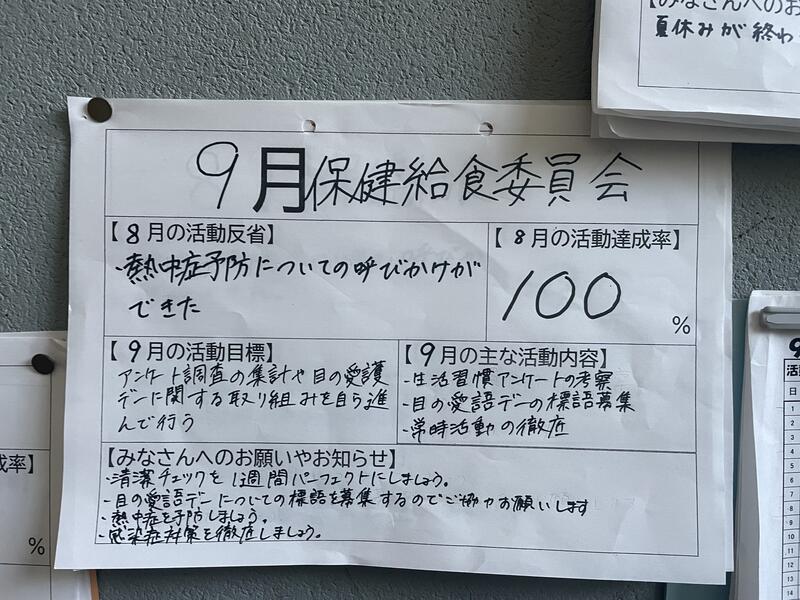 9月保健給食委員会
【8月の活動反省】
・熱中症予防についての呼びかけが
できた
【8月の活動達成率】
100
%
【9月の活動目標】
アンケート調査の集計や目の愛護
デーに関する取り組みを自ら進
んで行う
【9月の主な活動内容】
・生活習慣アンケートの考察
・目の愛語デーの標語募集
・常時活動の徹底
【みなさんへのお願いやお知らせ】
・清潔チェックを1週間パーフェクトにしましょう。
・目の愛語デーについての標語を募集するのでご協力お願いします
・熱中症を予防しましょう。
・感染症対策を徹底しましょう。
【みなさんへのお
夏休みが終わ
成率】
%
9
活動
日
1
2
3
4
5
6
7
8
9
10
11
12
13
14